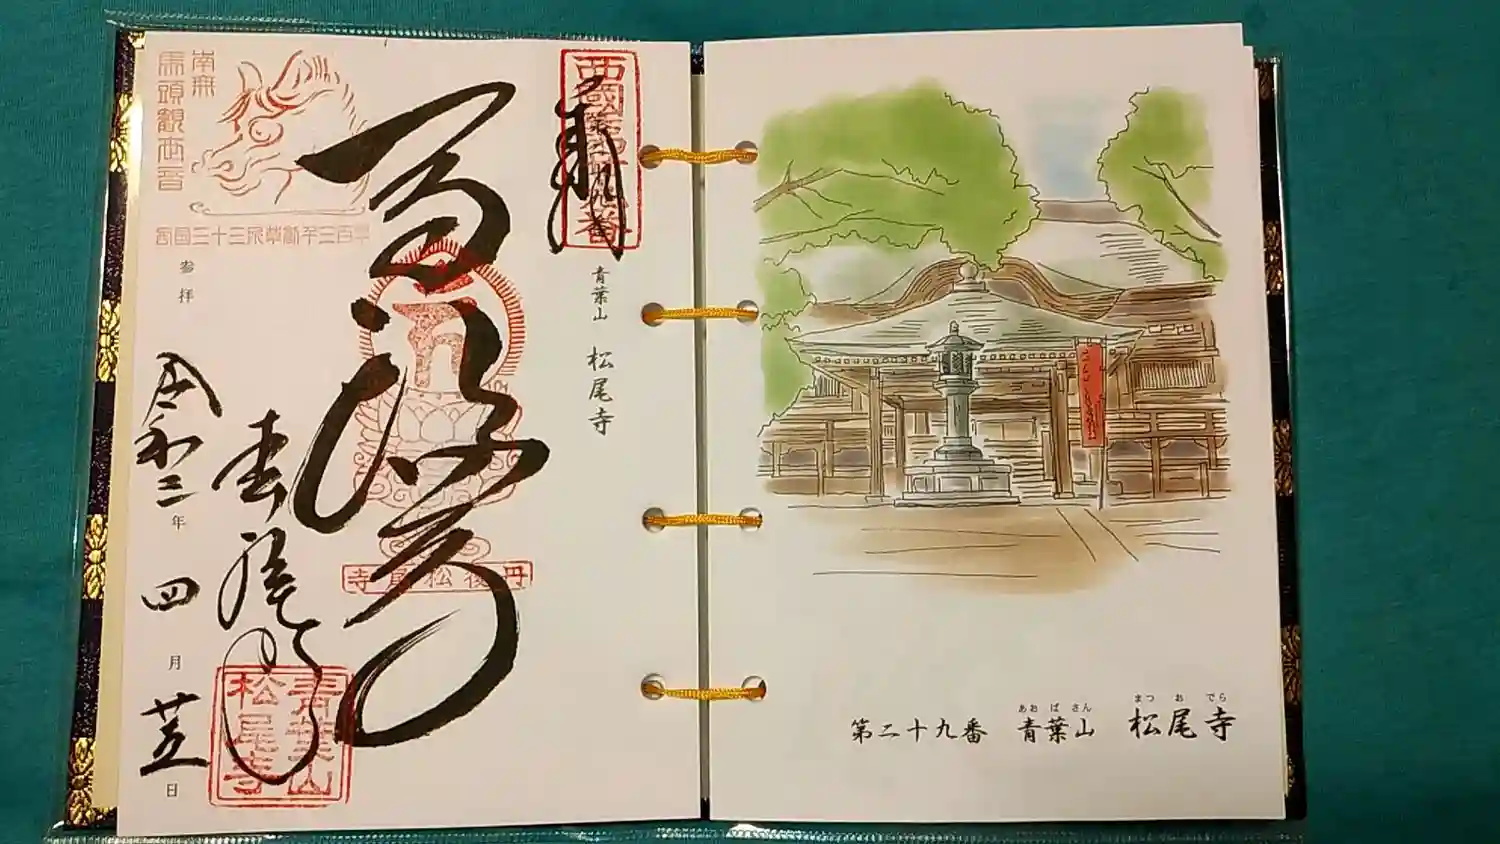 西國
第二十九番
奉拝
青葉山 松尾寺
馬頭尊
丹後松尾寺
南無
馬頭観世音
西国三十三所草創千三百年
参拝
松尾寺
青葉山
松尾寺
令和三年四月廿五日
第二十九番 青葉山 松尾寺
あおばさん まつおでら